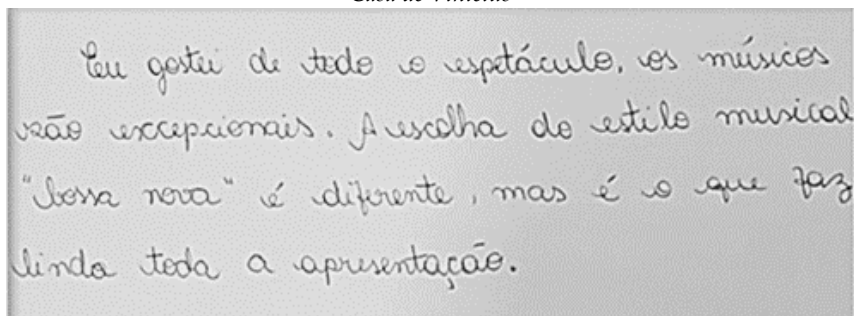 Eu gostei de todo o espetáculo, os músicos
são excepcionais. A escolha do estilo musical
"bossa nova" é diferente, mas é o que faz
linda toda a apresentação.